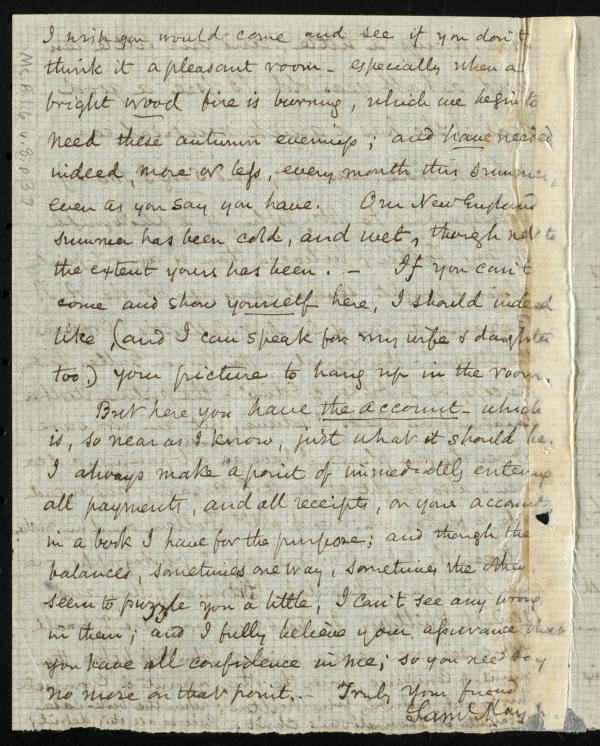 I wish you would come and see if you don't
think it a pleasant room - especially when a
bright wood fire is burning, which we begin to
need these autumn evenings; and have needed
indeed, more or less, every month this summer,
even as you say you have. Our New England
summer has been cold, and wet, though not to
the extent yours has been. - If you can't
come and show yourself here, I should indeed
like (and I can speak for my wife & daughter
too) your picture to hang up in the room.
But here you have the account - which
is, so near as I know, just what it should be.
I always make a point of immediately entering
all payments, and all receipts, on your account,
in a book I have for the purpose; and though the
balances, sometimes one way, sometimes the other
seem to puzzle you a little, I can't see any wrong
in them; and I fully believe your assurance that
you have all confidence in me; so you need say
no more on that point. - Truly Your friend
Saml. May
Ms.B.1.6 v.8 p37